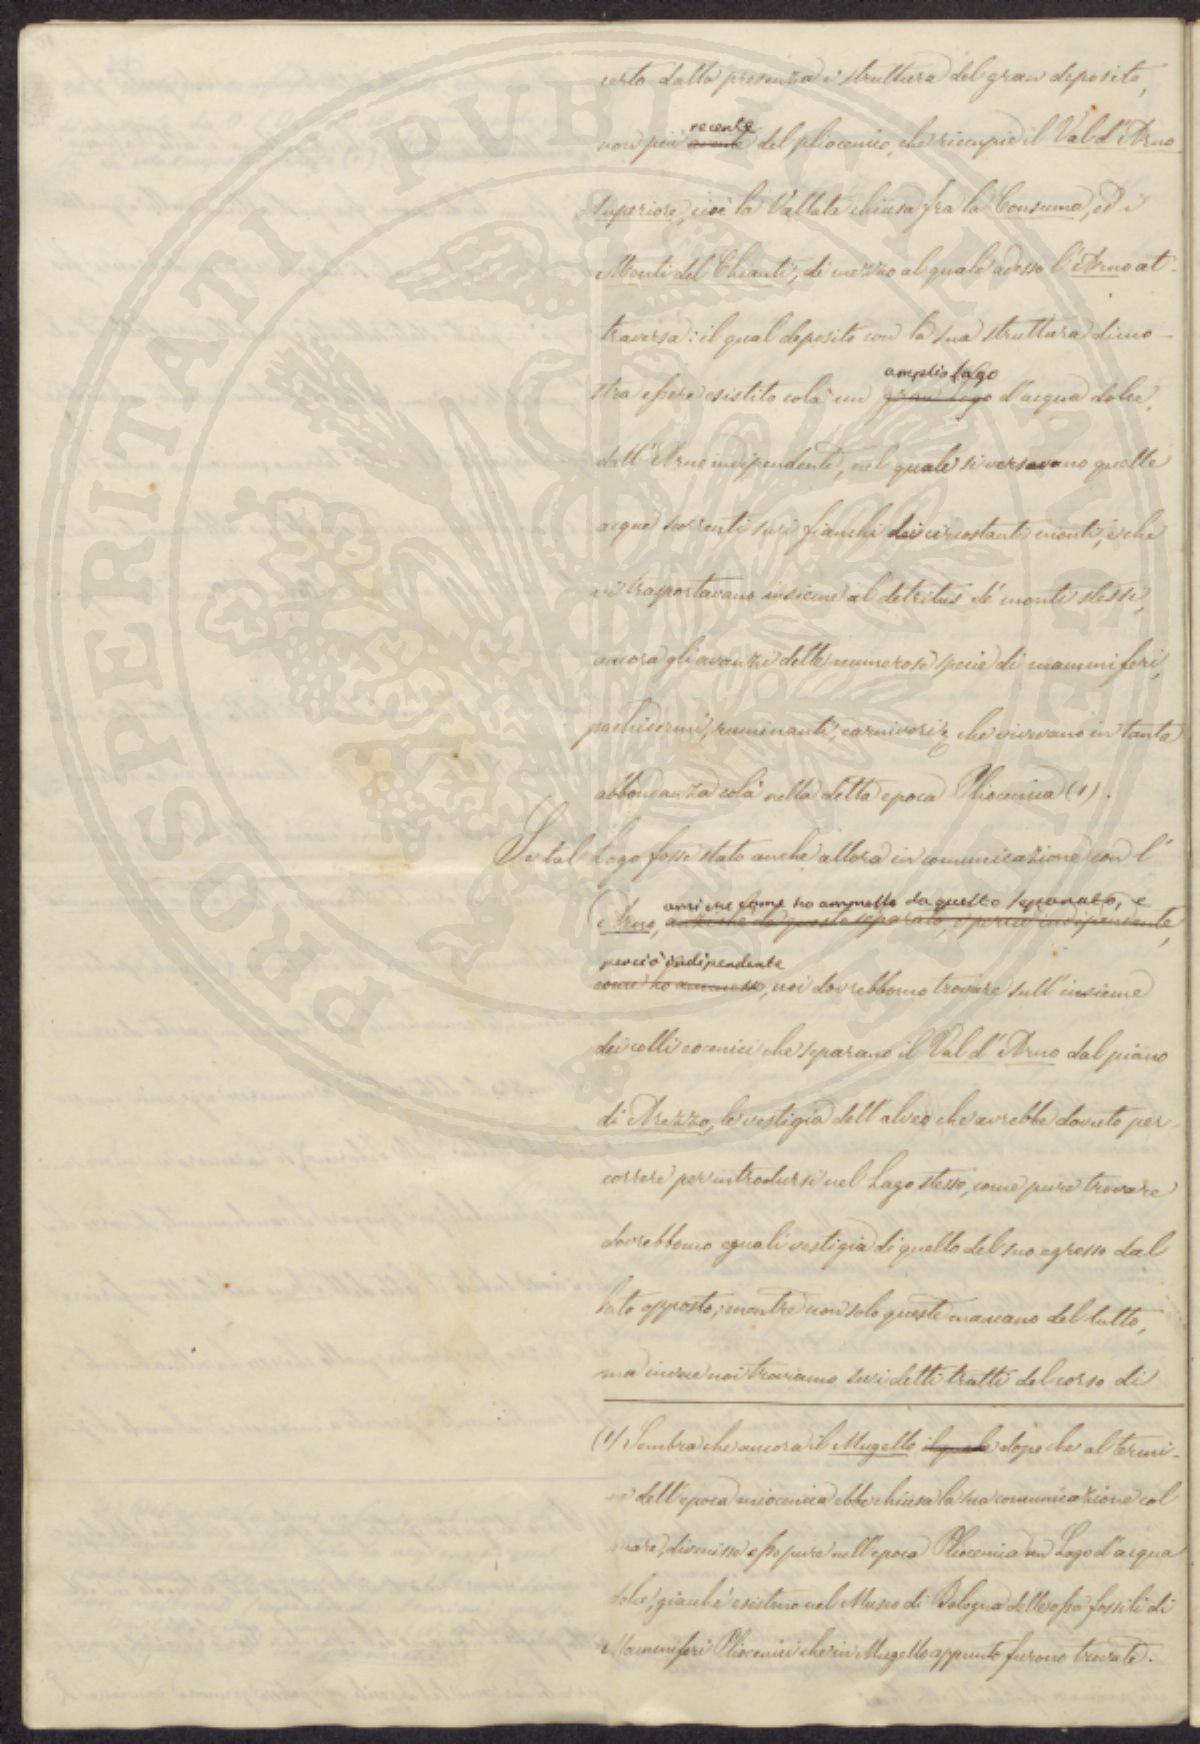 certo dalla presenza e struttura del gran deposito,
non più recente avente del pliocenico, che riempie il Val d'Arno
Superiore, cioè la Vallata chiusa fra la Consuma, ed i
Monti del Chianti, di mezzo al quale adesso l'Arno at-
traversa: il qual deposito con la sua struttura dimo-
stra essere esistito colà un amplio Lago gran Lago d'acqua dolce,
dall'Arno indipendente, nel quale si versavano quelle
acque correnti sui fianchi dei circostanti monti, e che
vi trasportavano insieme al detritus de' monti stessi,
ancora gli avanzi delle numerose specie di mammiferi,
pachidermi, ruminanti, carnivori, che vivevano in tanta
abbondanza colà nella detta epoca Pliocenica (1).
Se tal Lago fosse stato anche allora in comunicazione con l'
anziché come ho ammesso da quello separato, e
Arno, anziché da questo separato, e perciò indipendente,
perciò indipendente
come ho ammesso, noi dovrebbomo trovare sull'insieme
dei colli eocenici che separano il Val d'Arno dal piano
di Arezzo, le vestigia dell'alveo che avrebbe dovuto per-
correre per introdursi nel Lago stesso, come pure trovare
dovrebbomo eguali vestigia di quello del suo egresso dal
lato opposto; mentre non solo queste mancano del tutto,
ma invece noi troviamo sui detti tratti del corso di
(1) Sembra che ancora il Mugello il quale dopo che al termi-
ne dell'epoca miocenica ebbe chiusa la sua comunicazione col
mare, divenisse esso pure nell'epoca Pliocenica un Lago d'acqua
dolce, giacché esistono nel Museo di Bologna delle ossa fossili di
Mammiferi Pliocenici che in Mugello appunto furono trovate.
PROSPERITATI PVBLICAE AVGENDAE